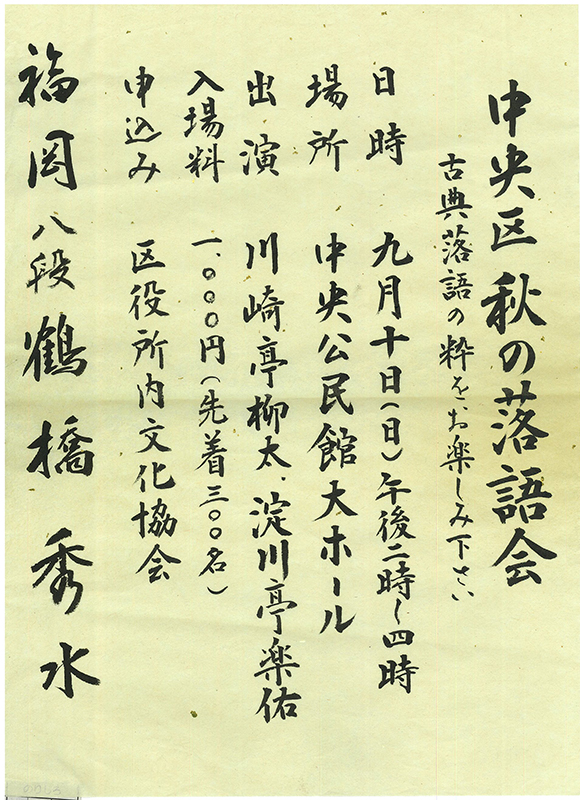 中央区秋の落語会
古典落語の粋をお楽しみ下さい
日時 九月十日(日)午後二時〜四時
場所 中央公民館大ホール
出演 川崎亭柳太、淀川亭楽佑
入場料 一、〇〇〇円(先着三〇〇名)
申込み 区役所内文化協会
福岡 八段 鶴橋秀水